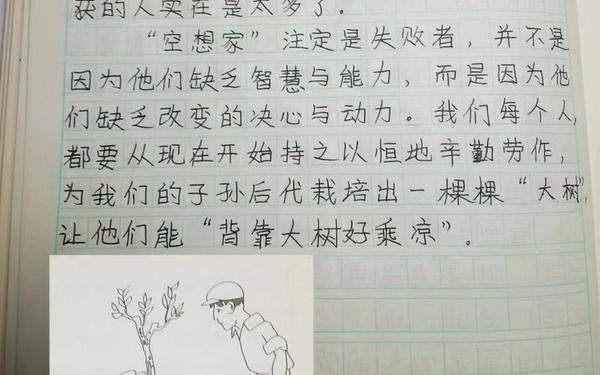 获的人实在是太多了.
“空想家”注定是失败者，并不是
因为他们缺乏智慧与能力，而是因为他
们缺乏改变的决心与动力。我们每个人,
都要从现在开始持之以恒地辛勤劳作，
为我们的子孙后代栽培出一棵棵“大树”,
让他们能“背靠大树好乘凉”。